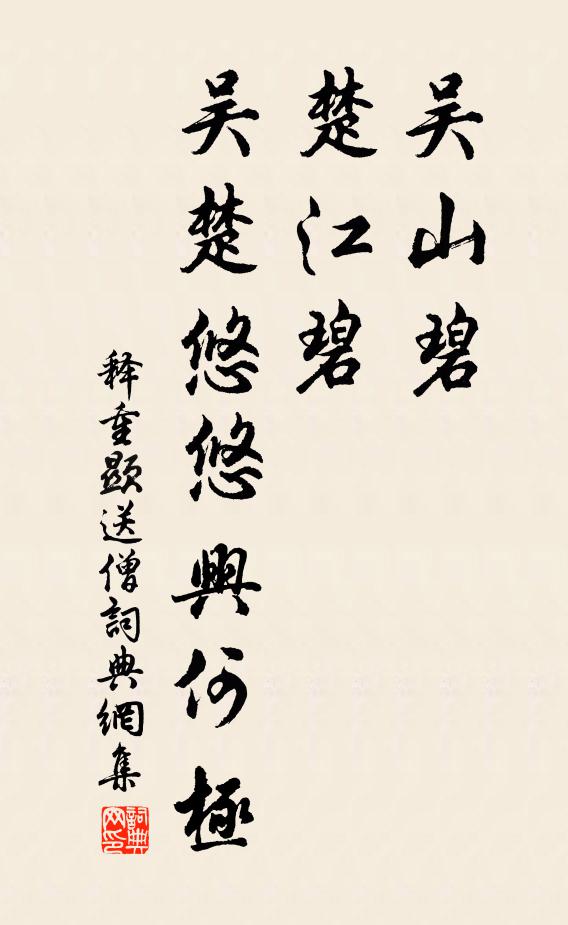 吴山碧
楚江碧
吴楚悠悠興何極
释重顯送僧詞典網集
詞典网印